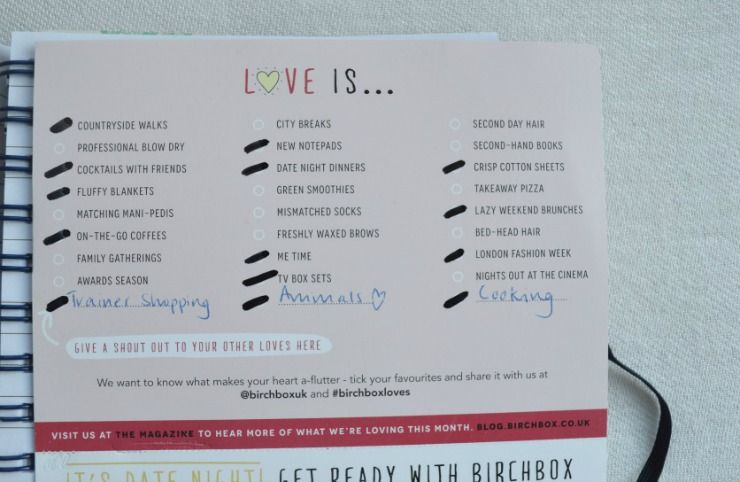 LOVE IS...
COUNTRYSIDE WALKS
PROFESSIONAL BLOW DRY
COCKTAILS WITH FRIENDS
FLUFFY BLANKETS
MATCHING MANI-PEDIS
ON-THE-GO COFFEES
FAMILY GATHERINGS
AWARDS SEASON
Trainer Shopping
CITY BREAKS
NEW NOTEPADS
DATE NIGHT DINNERS
GREEN SMOOTHIES
MISMATCHED SOCKS
FRESHLY WAXED BROWS
ME TIME
TV BOX SETS
Animals
SECOND DAY HAIR
SECOND-HAND BOOKS
CRISP COTTON SHEETS
TAKEAWAY PIZZA
LAZY WEEKEND BRUNCHES
BED-HEAD HAIR
LONDON FASHION WEEK
NIGHTS OUT AT THE CINEMA
Cooking
GIVE A SHOUT OUT TO YOUR OTHER LOVES HERE
We want to know what makes your heart a-flutter - tick your favourites and share it with us at
@birchboxuk and #birchboxloves
VISIT US AT THE MAGAZINE TO HEAR MORE OF WHAT WE'RE LOVING THIS MONTH. BLOG.BIRCHBOX.CO.UK
IT'S DATE NIGHT! GET READY WITH BIRCHBOX